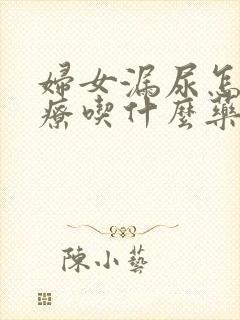 婦女漏尿怎
療喫什麼藥
陳小藝